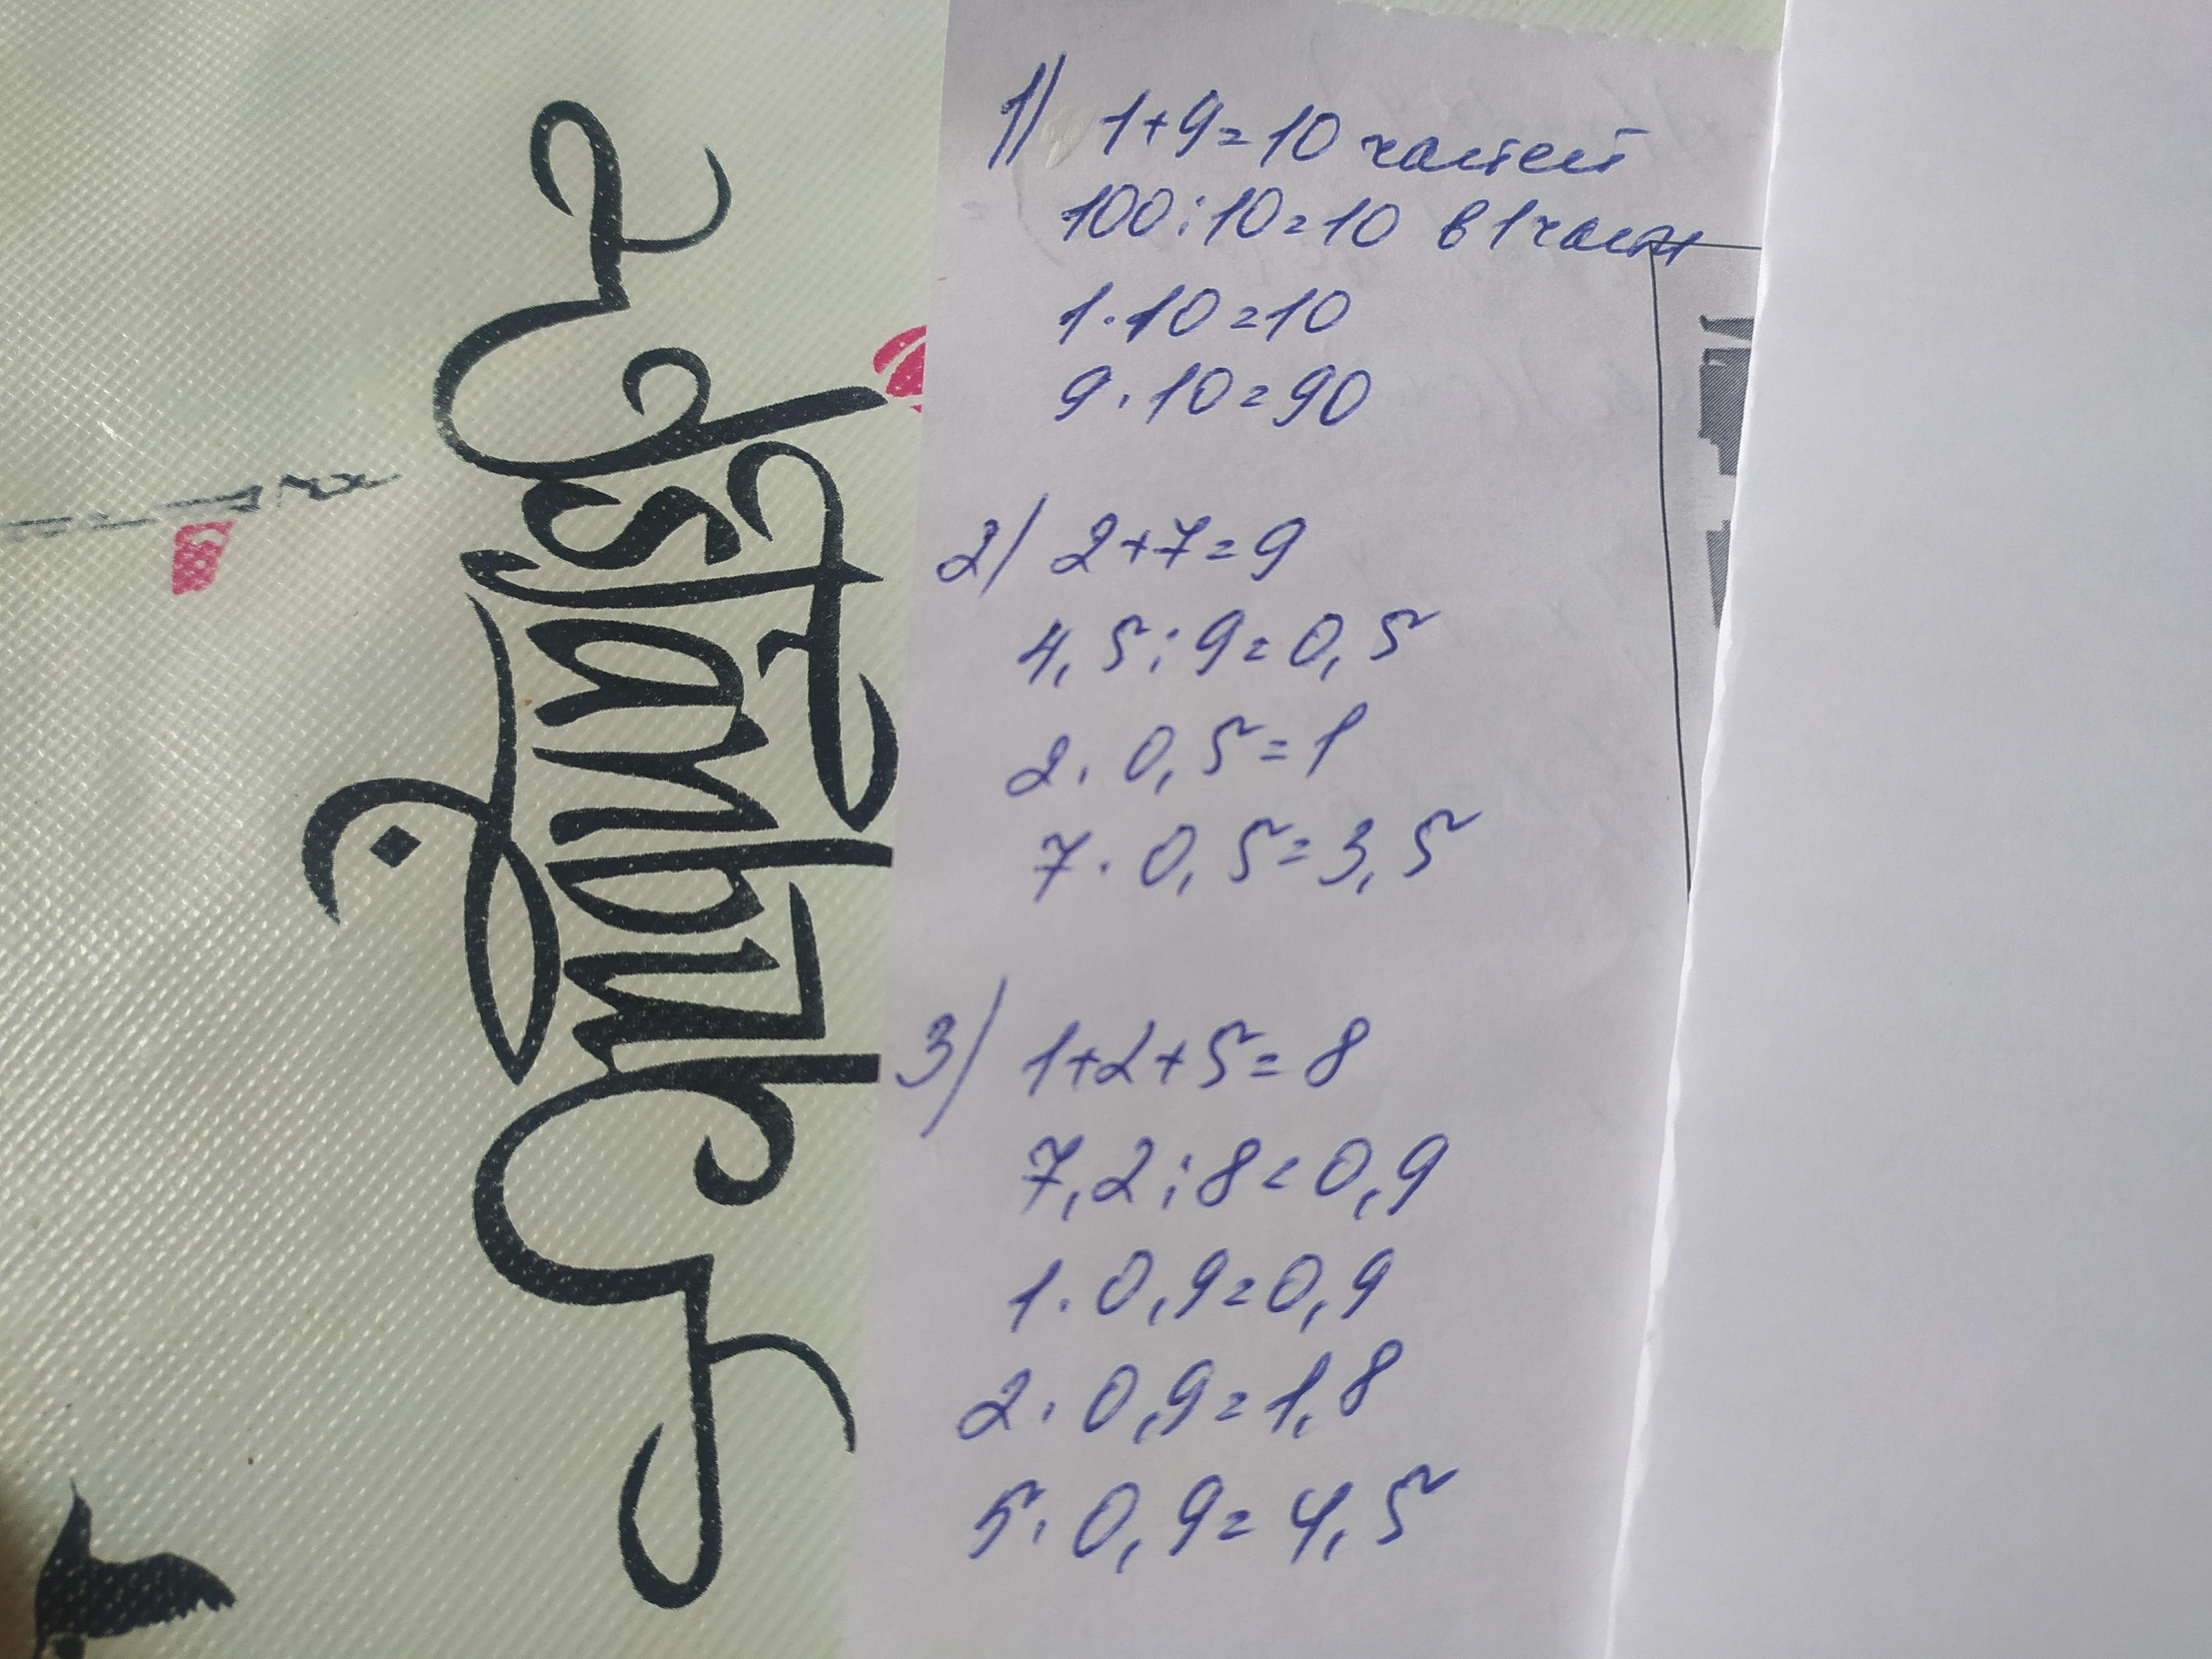 İstanbul
1) 1+9=10 частей
100:10=10 в 1 части
1·10=10
9·10=90
2) 2+7=9
4,5:9=0,5
2·0,5=1
7·0,5=3,5
3) 1+2+5=8
7,2:8=0,9
1·0,9=0,9
2·0,9=1,8
5·0,9=4,5